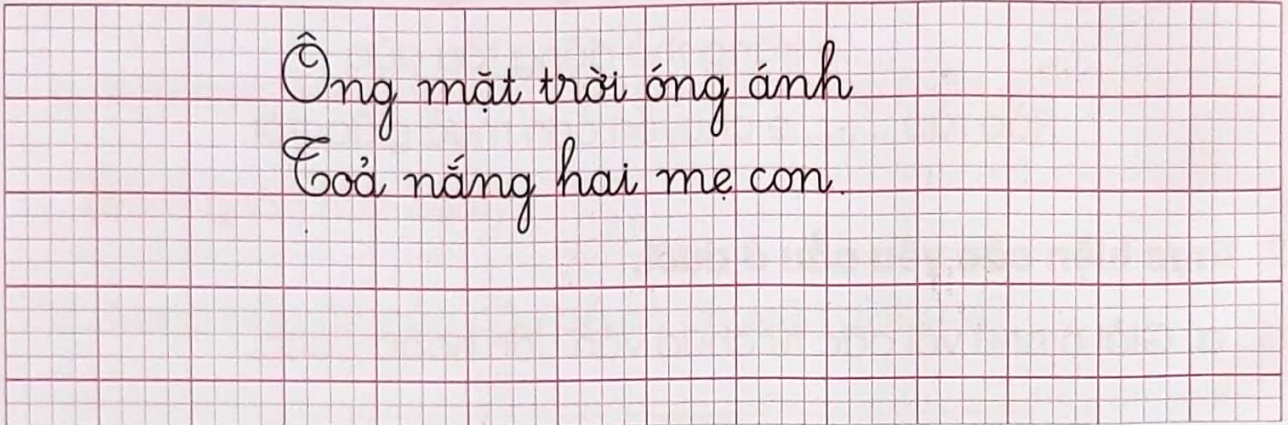 Ông mặt trời óng ánh
Toả nắng hai mẹ con.